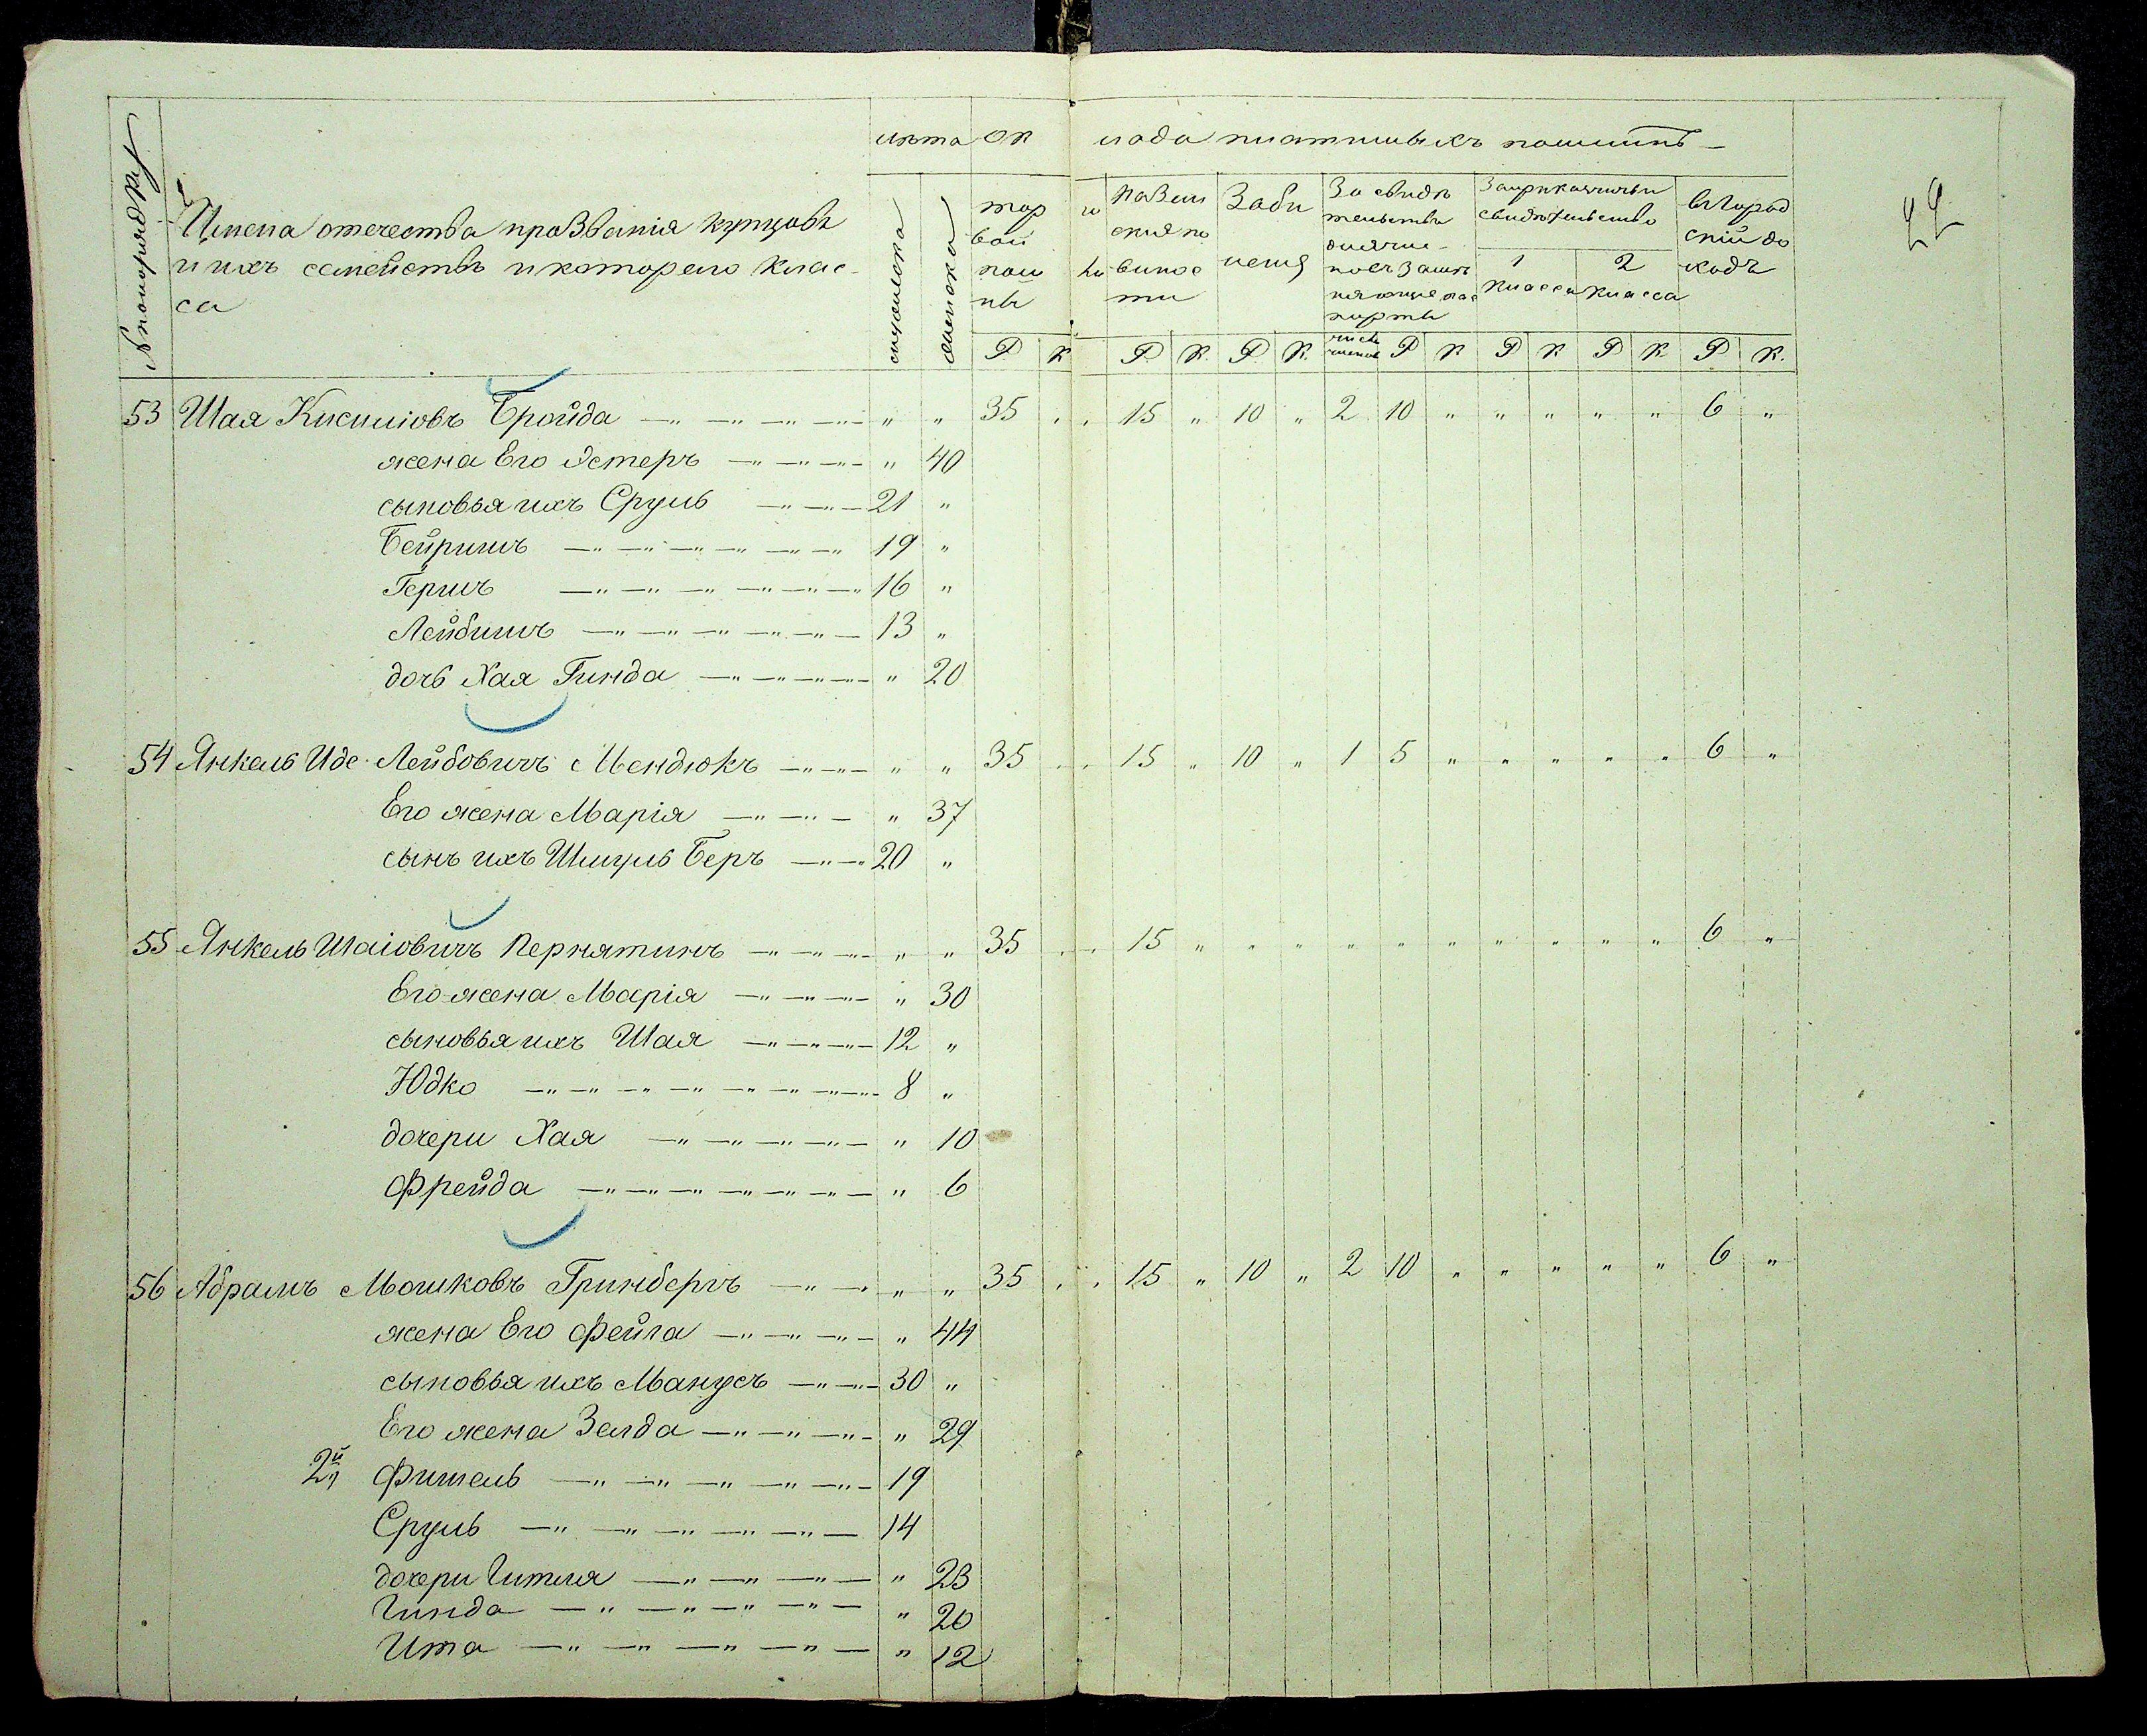 22
№ по порядку
Имена отечества прозванія купцовъ
и ихъ семействъ и котораго клас-
са
лѣта
мужеска
женска
ок лада платимыхъ пошлинъ
тор го
вой
пош ли
ны
на Зем
скія по
винос
ти
За би
леты
За свидѣ
тельства
число
членовъ
За прикащичьи
свидѣтельства
1
класса
2
класса
въ Город
скій до
ходъ
Р К Р К. Р К. Р К Р К Р К Р К.
53 Шая Кисиліовъ Бройда " " 35 . . 15 " 10 " 2 10 " " " " " 6 "
жена Его Эстеръ " 40
сыновья ихъ Сруль 21 "
Бейришъ 19 "
Гершъ 16 "
Лейбишъ 13 "
дочь Хая Гинда " 20
54 Янкель Иде Лейбовичъ Мендюкъ " " 35 . . 15 " 10 " 1 5 " " " " " 6 "
Его жена Марія " 37
сынъ ихъ Шмуль Беръ 20 "
55 Янкель Шаіовичъ Пернятинъ " " 35 . . 15 " " " " " " " " " " 6 "
Его жена Марія " 30
сыновья ихъ Шая 12 "
Юдко 8 "
дочери Хая " 10
Фрейда " 6
56 Абрамъ Мошковъ Гринбергъ " " 35 . . 15 " 10 " 2 10 " " " " " 6 "
жена Его Фейга " 44
сыновья ихъ Манусъ 30 "
Его жена Зелда " 29
2й Фишель 19
Сруль 14
дочери Гитля " 23
Гинда " 20
Ита " 12